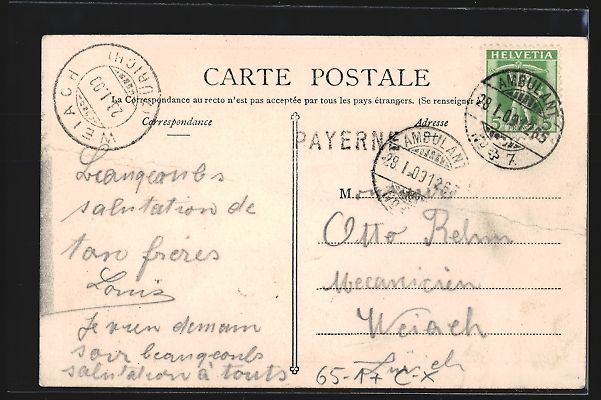 HELVETIA
CARTE POSTALE
La Correspondance au recto n'est pas acceptée par tous les pays étrangers. (Se renseigner
Correspondance
Adresse
PAYERNE
AMBULANT
28 I 09 1265
No 37
AMBULANT
28 I 09 126
WEIACH
(ZÜRICH)
Beaugeoubs
salutation de
ton fréres
Louis
Je vien demain
soir beaugeoubs
salutation à touts
Monsieur
Otto Rehm
Mecanicien
Weiach
Zürich
65-1+ C-X